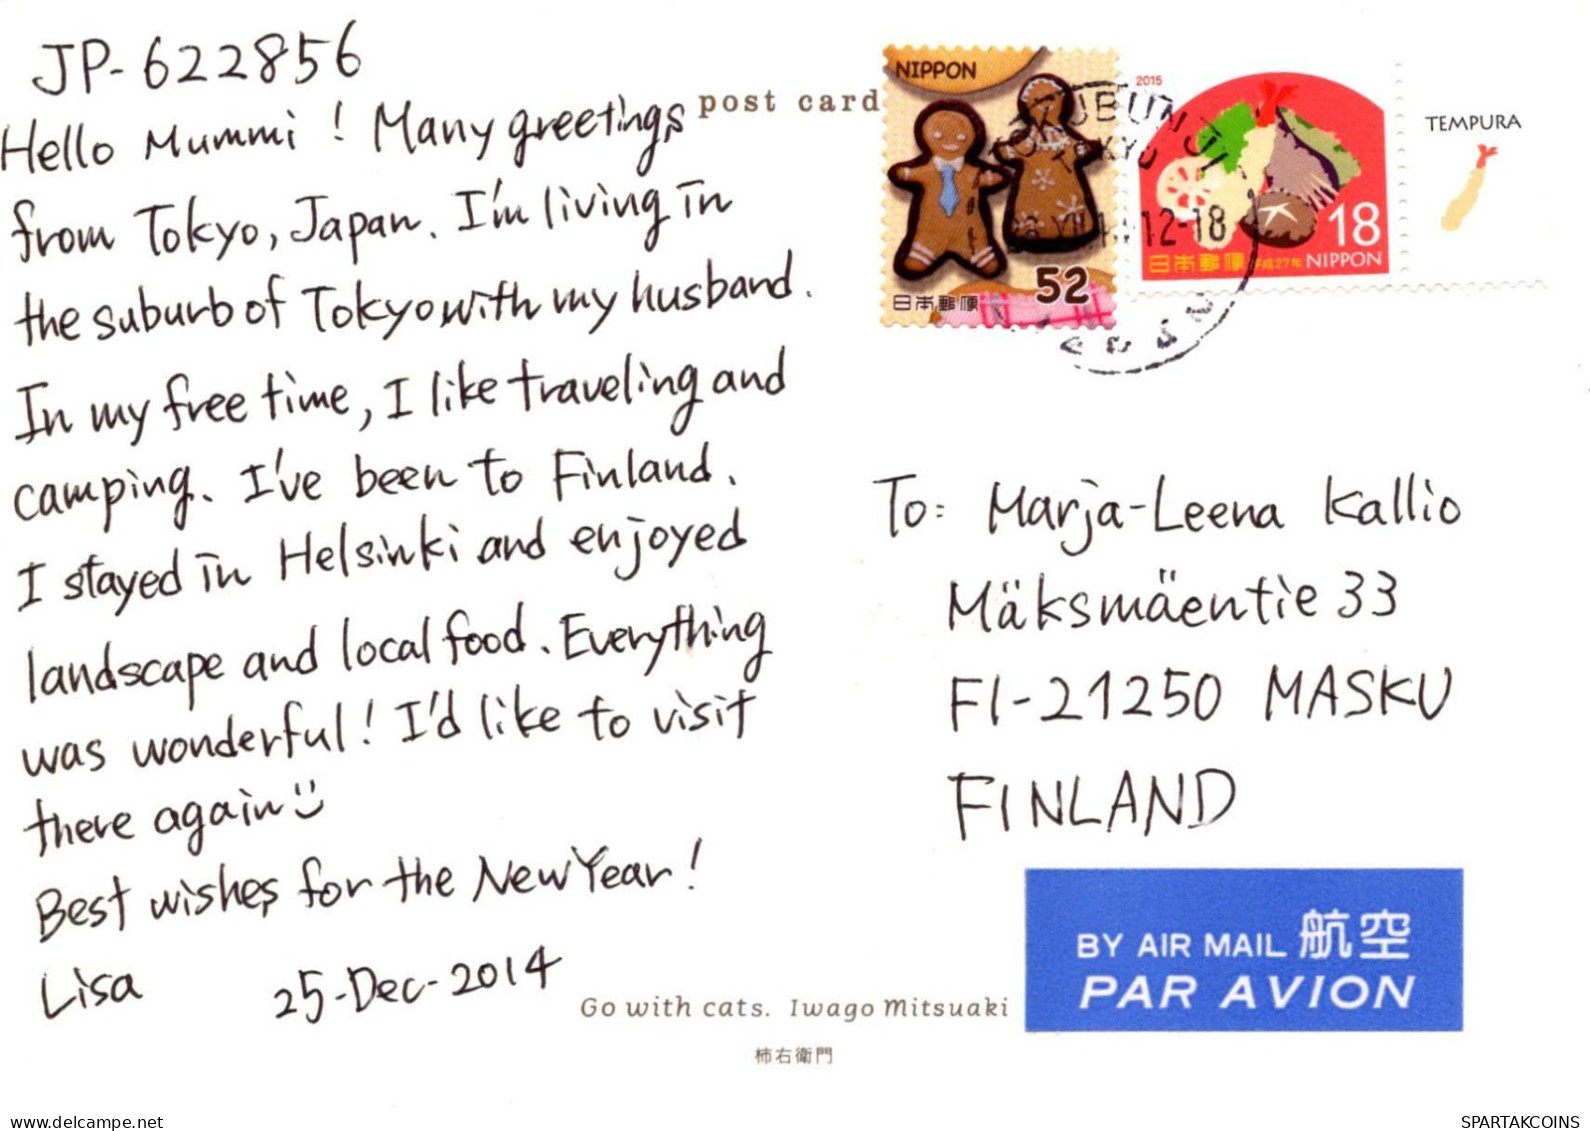 JP-622856
Hello Mummi! Many greetings
from Tokyo, Japan. I'm living in
the suburb of Tokyo with my husband.
In my free time, I like traveling and
camping. I've been to Finland.
I stayed in Helsinki and enjoyed
landscape and local food. Everything
was wonderful! I'd like to visit
there again
Best wishes for the New Year!
Lisa 25-Dec-2014
post card
NIPPON
52
日本郵便
2015
18
日本郵便 平成27年 NIPPON
TEMPURA
12-18
To: Marja-Leena Kallio
Mäksmäentie 33
FI-21250 MASKU
FINLAND
BY AIR MAIL 航空
PAR AVION
Go with cats. Iwago Mitsuaki
柿右衛門
www.delcampe.net
SPARTAKCOINS